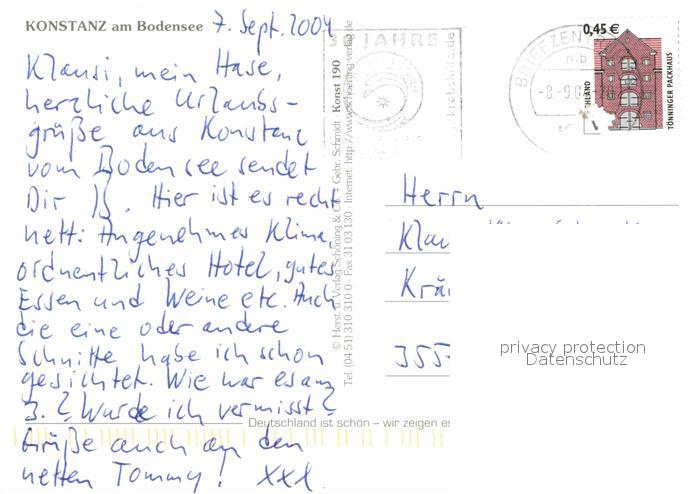 KONSTANZ am Bodensee 7. Sept. 2004
Klausi, mein Hase,
herzliche Urlaubs-
grüße aus Konstanz
vom Bodensee sendet
Dir Hier ist es recht
nett: Angenehmes Klima,
ordnentliches Hotel, gutes
Essen und Weine etc. Auch
die eine oder andere
Schnitte habe ich schon
gesichtet. Wie war es am
3.? Wurde ich vermisst?
Grüße auch an den
netten Tommy! XXX
© Herst. u. Verlag Schöning & Co + Gebr. Schmidt Konst 190
Tel. (04 51) 310 310 0 · Fax 31 03 130 · Internet: http://www.schoening-verlag.de
Deutschland ist schön – wir zeigen es
JAHRE
BRIEFZEN
mb
-8.-9.
0,45 €
HLAND
TÖNNINGER PACKHAUS
Herrn
Klau
Krä
355
privacy protection
Datenschutz